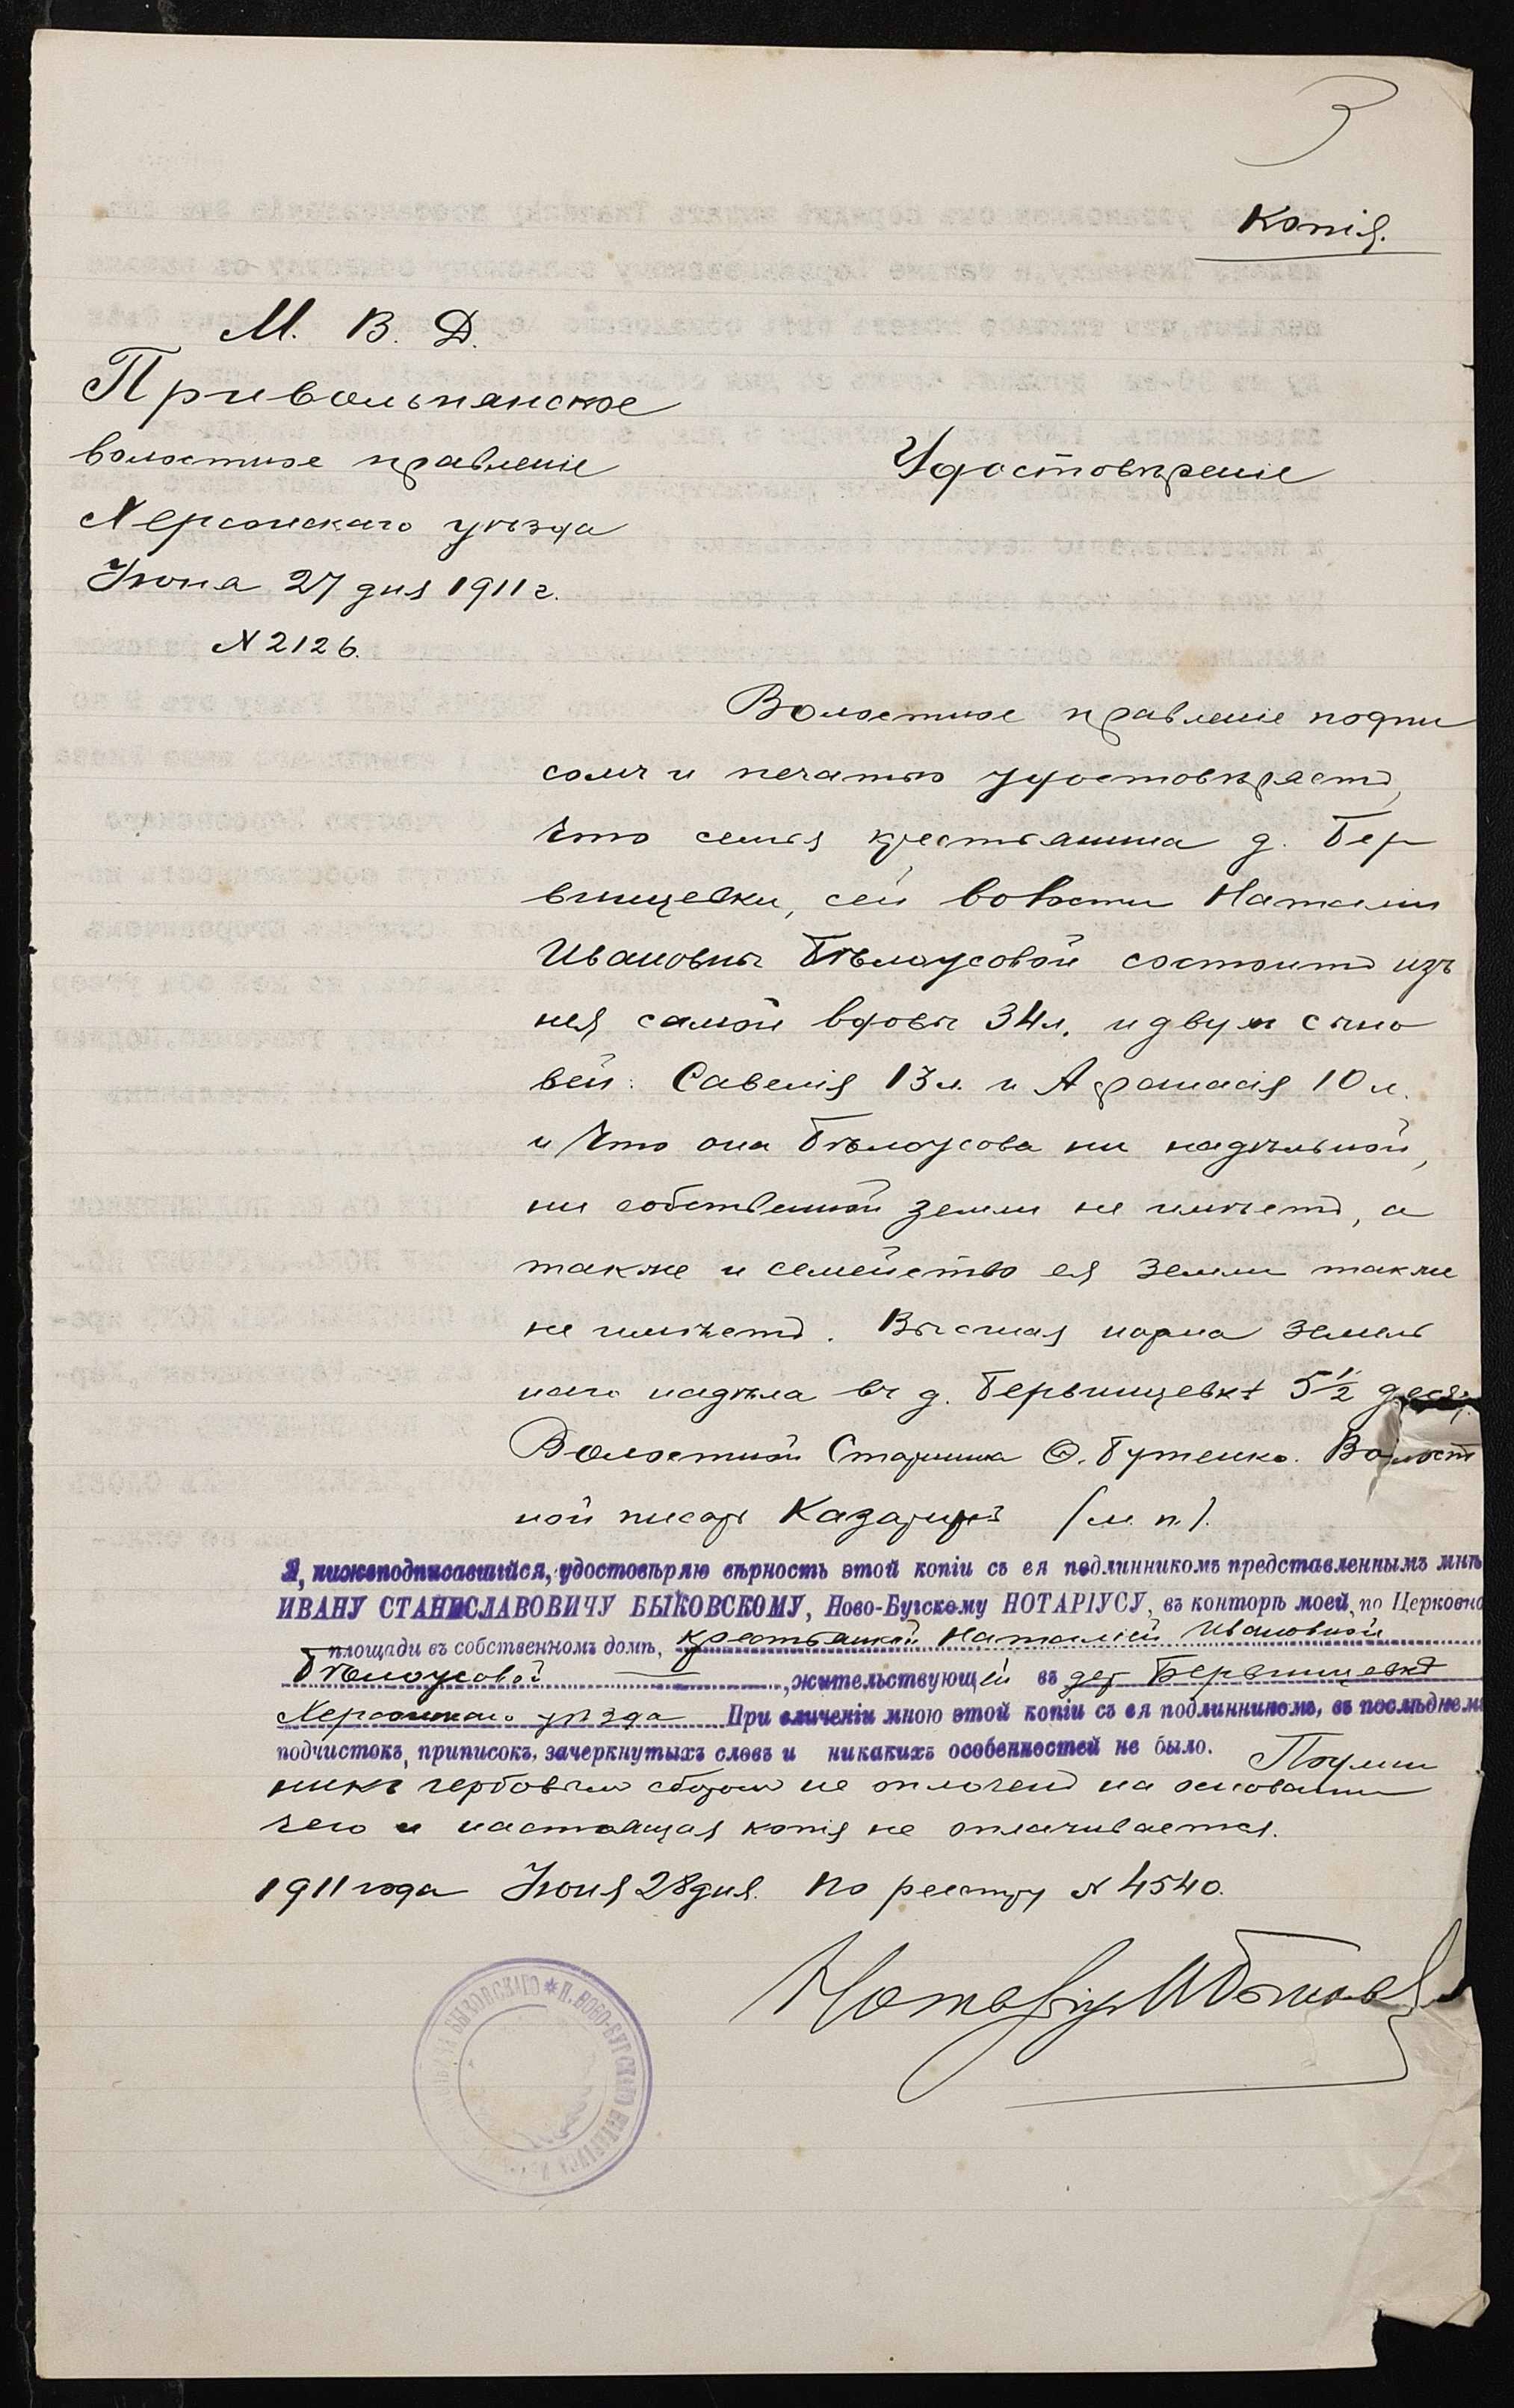 3
Копія.
М. В. Д.
Привольнянское
волостное правленіе
Херсонскаго уѣзда
Іюня 27 дня 1911 г.
N 2126.
Удостовѣреніе
Волостное правленіе подпи
сомъ и печатью удостовѣряетъ,
что семья крестьянина д. Бер
вищевки, сей волости Наталіи
Ивановны Бѣлоусовой состоитъ изъ
нея самой вдовы 34 л. и двух сыно
вей: Савелія 13 л. и Афанасія 10 л.
и что она Бѣлоусова ни надѣльной,
ни собственной земли не имѣетъ, а
также и семейство ея земли также
не имѣетъ. Высшая норма земель
наго надѣла въ д. Бервищевкѣ 5 1/2 десят.
Волостной Старшина Ѳ. Бутенко. Волост
ной писарь Казарцевъ (м. п.).
Я, нижеподписавшійся, удостовѣряю вѣрность этой копіи съ ея подлинникомъ представленнымъ мнѣ
ИВАНУ СТАНИСЛАВОВИЧУ БЫКОВСКОМУ, Ново-Бугскому НОТАРІУСУ, въ конторѣ моей, по Церковно
площади въ собственномъ домѣ, крестьянкой Наталіей Ивановной
Бѣлоусовой, жительствующей въ дер Бервищевкѣ
Херсонскаго уѣзда При сличеніи мною этой копіи съ ея подлинникомъ, въ послѣднемъ
подчистокъ, приписокъ, зачеркнутыхъ словъ и никакихъ особенностей не было. Подлин
никъ гербовымъ сборомъ не оплоченъ на основаніи
чего и настоящая копія не оплачивается.
1911 года Іюня 28 дня. По реестру N 4540.
Нотаріусъ И Быковскі
БЫКОВСКАГО * П. НОВО-БУГСКАГО НОТАРІУСА